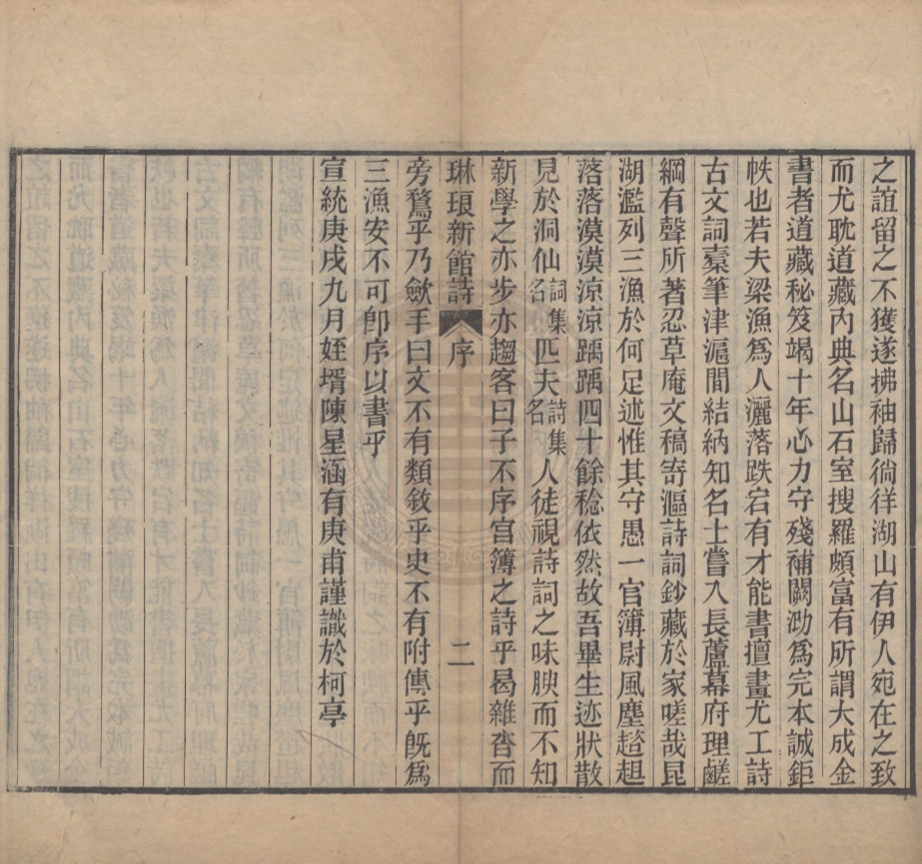 之誼留之不獲遂拂袖歸徜徉湖山有伊人宛在之致
而尤耽道藏內典名山石室搜羅頗富有所謂大成金
書者道藏秘笈竭十年心力守殘補闕泐為完本誠鉅
帙也若夫梁漁為人灑落跌宕有才能書擅畫尤工詩
古文詞橐筆津滬間結納知名士嘗入長蘆幕府理鹺
綱有聲所著忍草庵文稿寄漚詩詞鈔藏於家嗟哉昆
湖濫列三漁於何足述惟其守愚一官簿尉風塵趦趄
落落漠漠涼涼踽踽四十餘稔依然故吾畢生迹狀散
見於洞仙詞集名匹夫詩集名人徒視詩詞之味腴而不知
新學之亦步亦趨客曰子不序官簿之詩乎曷雜沓而
琳琅新館詩 序 二
旁騖乎乃歛手曰文不有類敘乎史不有附傳乎既為
三漁安不可卽序以書乎
宣統庚戌九月姪壻陳星涵有庚甫謹識於柯亭